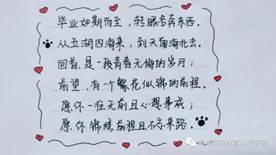 毕业如期而至，转眼各奔东西。
从五湖四海来，到天南海北去。
回首，是一段青春无悔的岁月；
前望，有一个繁花似锦的前程。
愿你一往无前且心想事成；
愿你锦绣前程且不忘来路。